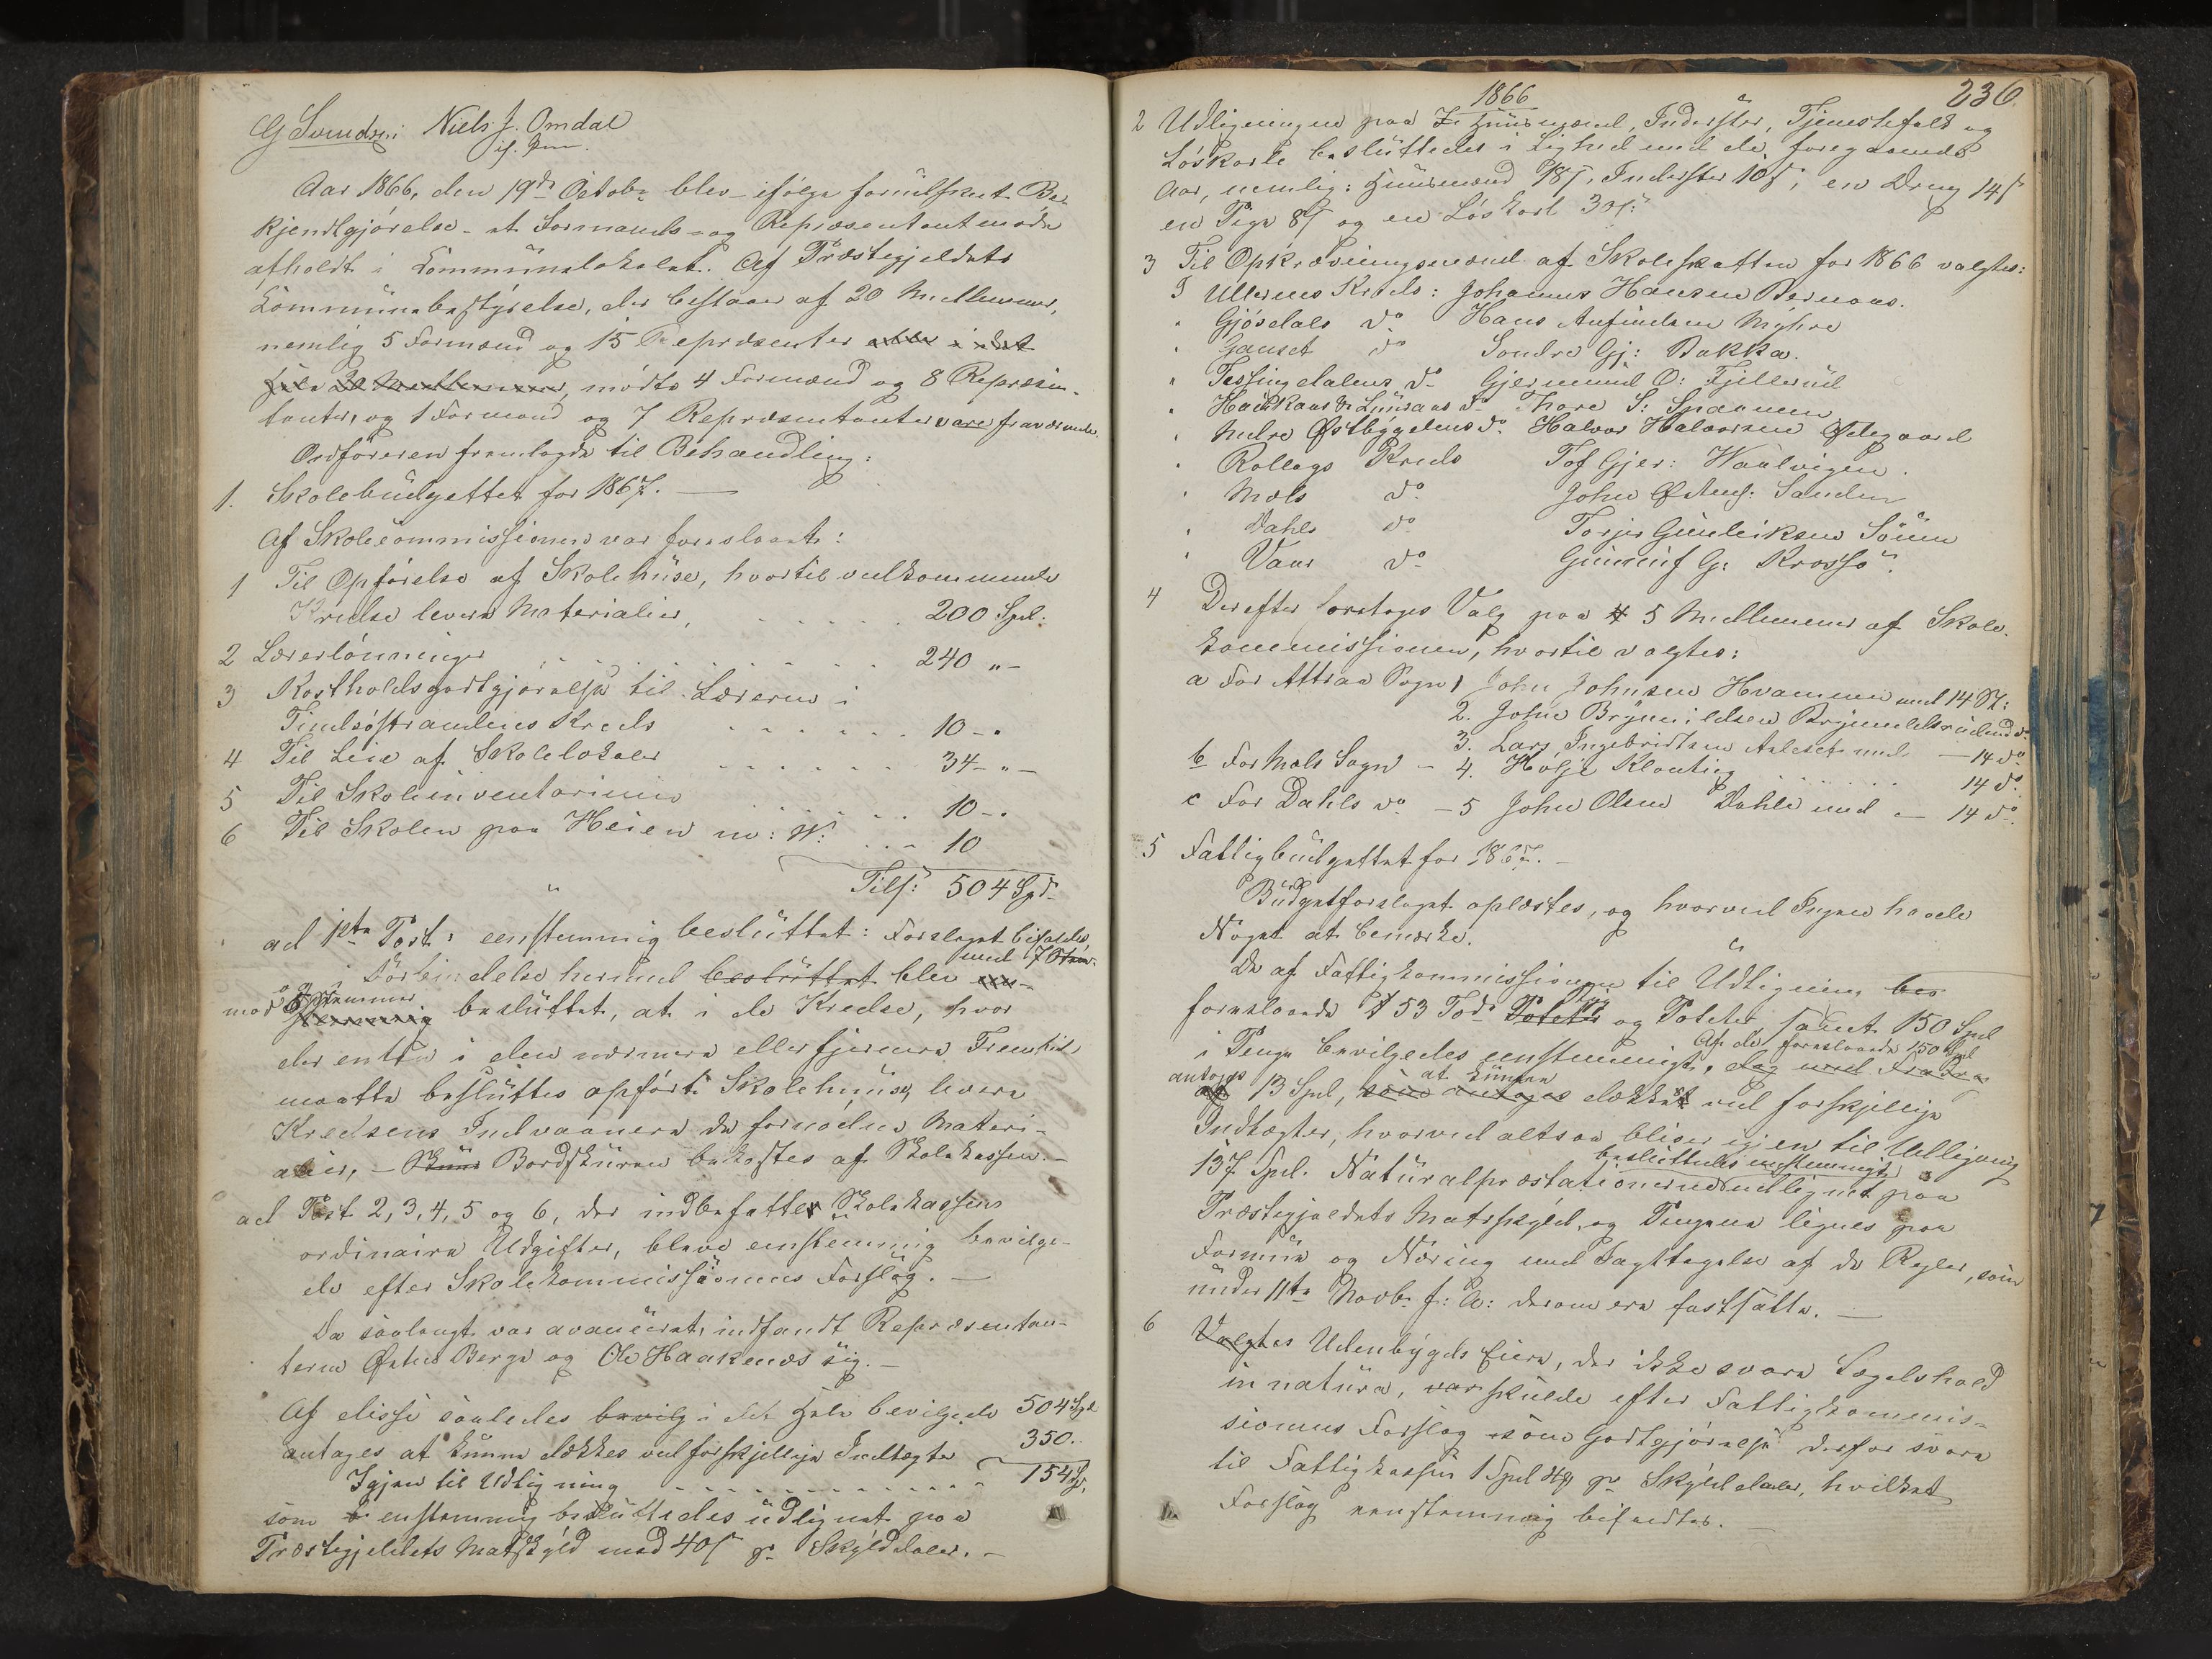 G Svendsen Niels J. Omdal
if. Pen.
Aar 1866, den 19de Octobr blev ifølge forudskeet Be-
kjendtgjørelse et Formands- og Repræsentantmøde
afholdt i Kommunelokalet. Af Præstegjeldets
Kommunebestyrelse, der bestaar af 20 Medlemmer,
nemlig 5 Formænd og 15 Repræsenter
mødte 4 Formænd og 8 Repræsen-
tanter, og 1 Formand og 7 Repræsentanter vare fraværende.
Ordføreren fremlagde til Behandling:
1. Skolebudgettet for 1867. —
Af Skolecommissionen var foreslaaet:
1 Til Opførelse af Skolehuse, hvortil vedkommende
Kredse levere Materialier, . . . . . 200 Spd.
2 Lærerlønninger . . . . . . . . . 240 „ –
3 Kostholdsgodtgjørelse til Læreren i
Tindsøstrandens Kreds . . . . . . 10 – „
4 Til Leie af Skolelokaler . . . . . . 34 – „ –
5 Til Skoleinventarium . . . . . 10 – „
6 Til Skolen paa Heien m: W: . . . 10
Tils: 504 Spd
ad 1ste Post: eenstemmig besluttet: Forslaget bifaldes,
med 7 Stem.
i Forbindelse hermed besluttet blev een-
mod 5 Stemmer
stemmig besluttet, at i de Kredse, hvor
der enten i den nærmere eller fjernere Fremtid
maatte besluttes opført Skolehuus, levere
Kredsens Indvaanere de fornødne Materi-
alier, – Skuur Bordskuren bekostes af Skolekassen. –
ad Post 2, 3, 4, 5 og 6, der indbefatter Skolekassens
ordinaire Udgifter, bleve eenstemmig bevilge-
de efter Skolekommissionens Forslag. —
Da saalangt var avanceret, indfandt Repræsentan-
terne Østen Berge og Ole Haakenæs sig. —
Af disse saaledes bevilg i det Hele bevilgede 504 Spd
antages at kunne dækkes ved forskjellige Indtægter 350.
Igjen til Udligning . . . . . . . . . . 154 Sp.
som eenstemmig besluttedes udlignet paa
Præstegjeldets Matskyld med 40 ß pr Skylddaler. –
1866
236
2 Udligningen paa Huusmænd, Inderster, Tjenestefolk og
Løskarle besluttedes i Lighed med de foregaaende
Aar, nemlig: Huusmænd 18 ß, Inderster 10 ß, en Dreng 14 ß
en Pige 8 ß og en Løskarl 30 ß.
3 Til Opkrævningsmænd af Skoleskatten for 1866 valgtes:
I Ullernes Kreds: Johannes Hansen Bernaas.
„ Gjøsdals do Hans Anfindsen Myhre
„ Gauset do Sondre Gj: Bakka.
„ Tessingdalens do Gjermund O: Fjellerud
„ Haukaas & Luuraas do Thore S: Spaanem
„ Indre Østbygdens do Halvor Halvorsen Ødegaard
„ Rollags Kreds Tof Gjer: Waalvigen.
„ Mæls do John Østens: Sanden
„ Dahls do Torjer Gunleiksen Søum
„ Vaar do Gunnuf G: Krossø.
4 Derefter foretoges Valg paa 5 Medlemmer af Skole-
kommissionen, hvortil valgtes:
a For Attraa Sogn 1 John Johnsen Hvammen med 14 St:
2. John Brynildsen Brynildsrud med do
3. Lars Ingebridtsen Aaleset med — 14 do
b For Mæls Sogn – 4. Holje Klonteig . . . . . . . 14 do
c For Dahls do – 5 John Olsen Dahle med — 14 do.
5 Fattigbudgettet for 1867. –
Budgetforslaget oplæstes, og hvorved Ingen havde
Noget at bemærke.
De af Fattigkommissionen til Udligning bes
foreslaaede 53 Tdr Poteter og Poteter samt 150 Spd
Af de foreslaaede 150 Spd
i Penge bevilgedes eenstemmigt, dog med Fradrag
antoges at kunne
af 13 Spd, som antages dækket ved forskjellige
Indtægter, hvorved altsaa bliver igjen til Udligning
besluttedes eenstemmigt
137 Spd. Naturalpræstationerne udlignet paa
Præstegjeldets Matrskyld, og Pengene lignes paa
Formue og Næring med Iagttagelse af de Regler, som
under 11te Novbr f: A: derom ere fastsatte. —
6 Valgtes Udenbygds Eiere, der ikke svare Lægdshold
in natura, var skulde efter Fattigkommis-
sionens Forslag som Godtgjørelse derfor svare
til Fattigkassen 1 Spd pr Skylddaler, hvilket
Forslag eenstemmig bifaldtes. —